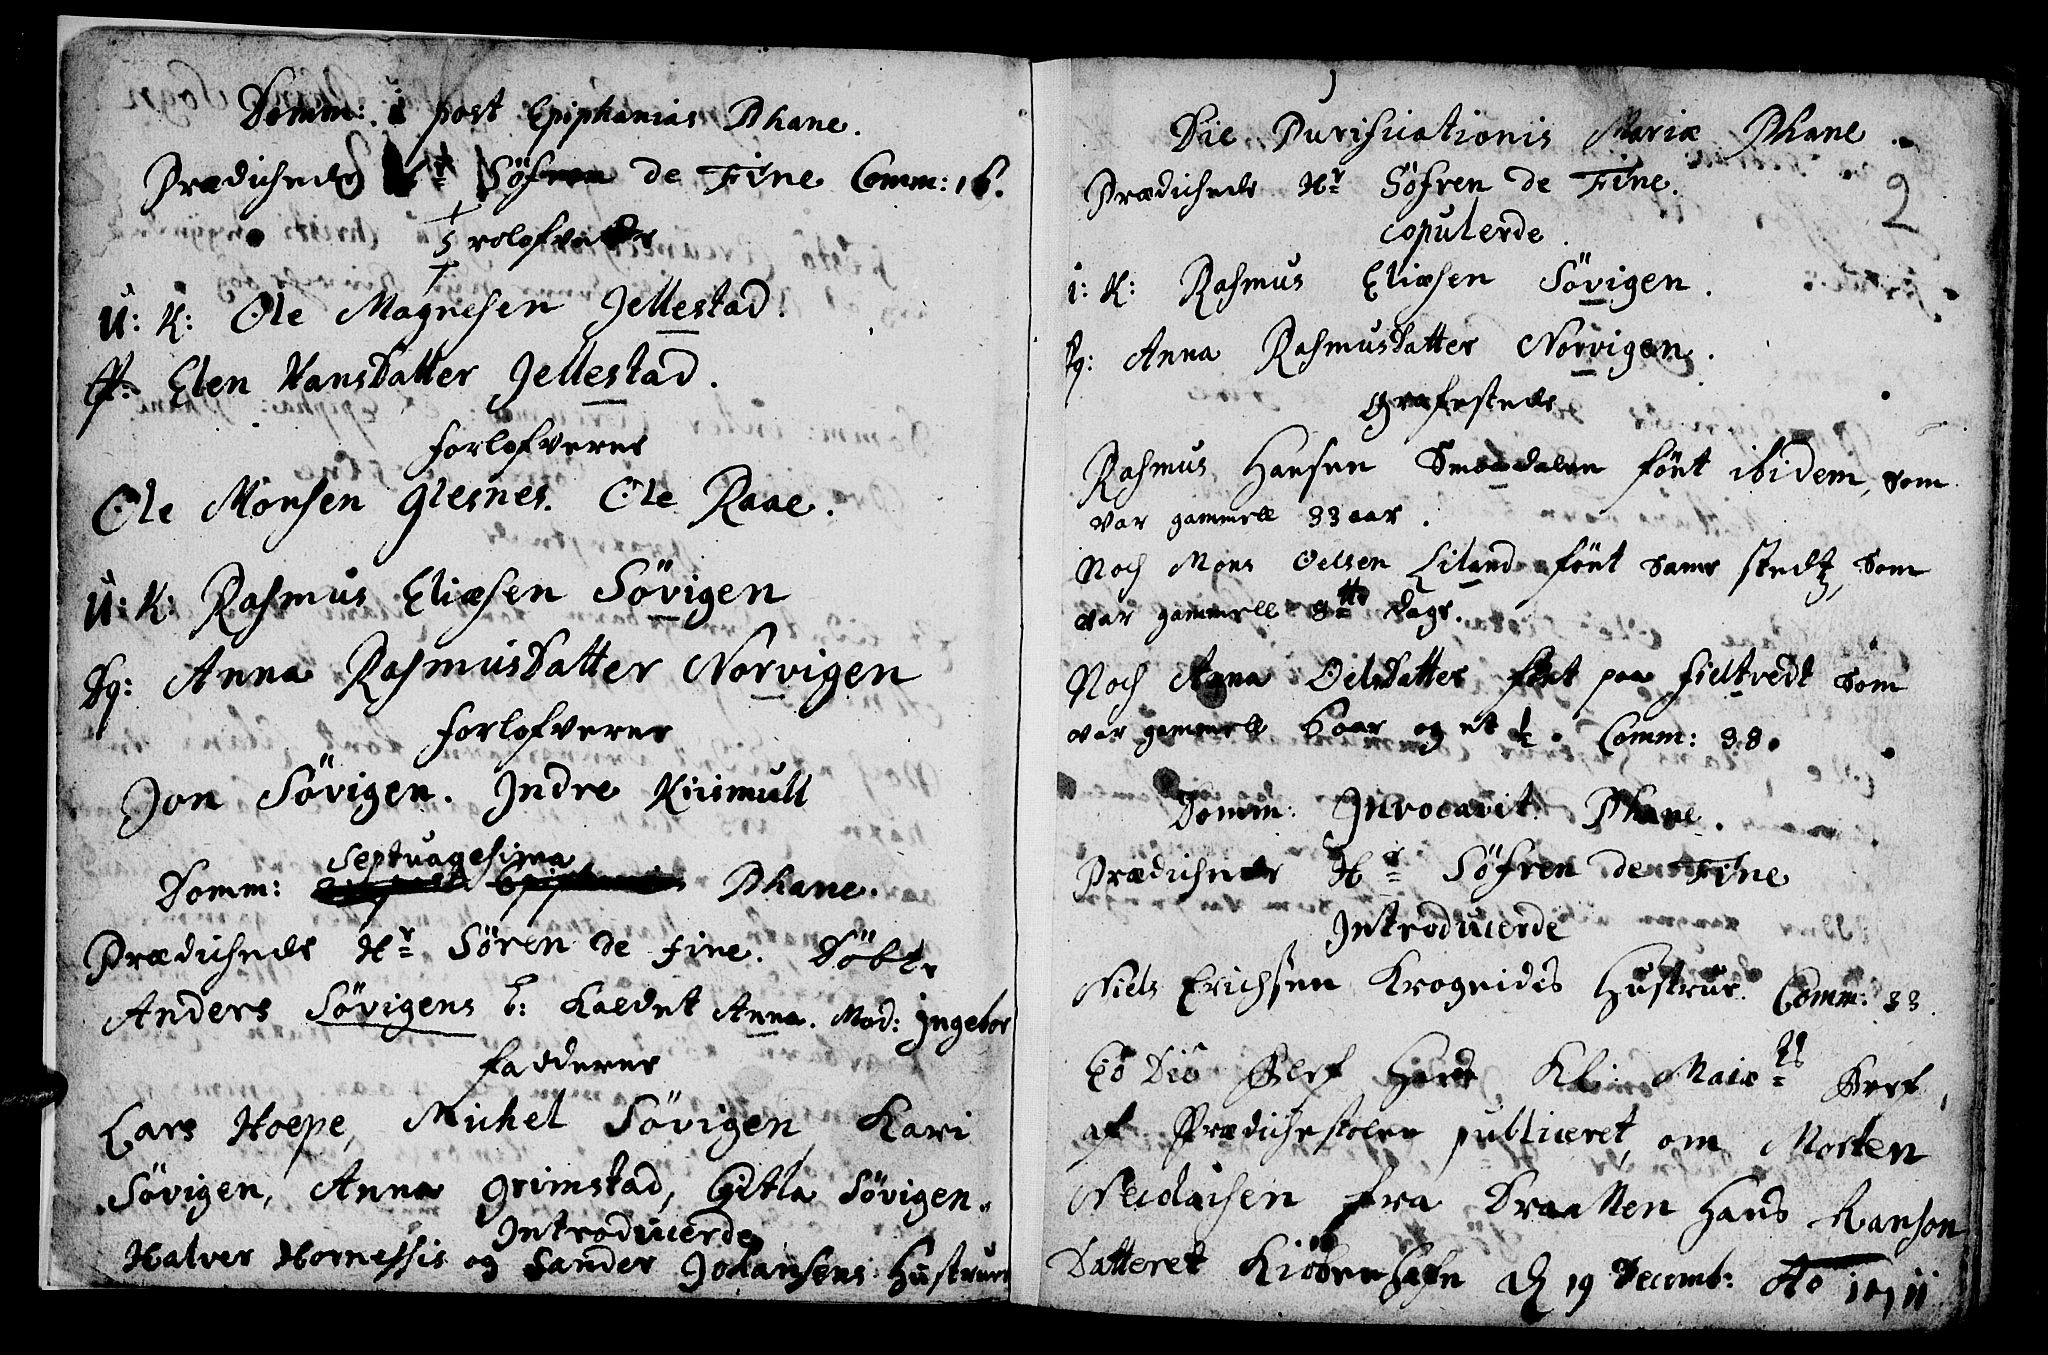 Domm: 1 post Epiphanias Phane.
Prædichede Hr Söfren de Fine Comm: 16.
Trolofvede
U: K: Ole Magnesen Jellestad.
P: Elen Hansdatter Jellestad.
forlofverne
Ole Monsen Glesnes. Ole Raae.
U: K: Rasmus Eliæsen Sövigen
Pg: Anna Rasmusdatter Norvigen
forlofverne
Jon Sövigen. Indre Kismull
Septuagesima
Domm: Phane.
Prædichede Hr Sören de Fine. Döbt
Anders Sövigens b: kaldet Anna. Mod: Ingebor
fadderne
Lars Hoepe, Michel Sövigen, Kari
Sövigen, Anna Grimstad, Gitla Sövigen.
Introducerde
Halver Hornessis og Sander Johansens Hustruer
Die Purificationis Mariæ Phane
2
Prædichede Hr Söfren de Fine.
Copulerde.
1: K: Rasmus Eliæsen Sövigen.
Pg: Anna Rasmusdatter Norvigen.
Grafestede
Rasmus Hansen Smaadalen fönt ibidem, som
var gammell 33 aar.
Noch Mons Oelsen Liland fönt same stedtz, som
var gammell 8tte dage.
Noch Anna Oelsdatter fönt paa fieltvedt som
var gammell 6 aar og et ½. Comm: 38.
Domm: Invocavit Phane.
Prædichede Hr Söfren de Fine
Introducerde
Niels Erichsen Krogeides Hustrue. Comm: 33
Eo Die blef Hans Kl: Maiets Bref,
af Prædichestolen publiceret, om Morten
Neidaisen fra Draatten Hans Ranson
Datteret Kiöbenhafn d 19 Decemb: Ao 1711